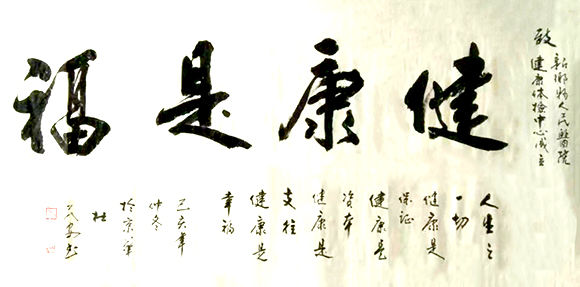 致
新鄉
人民醫院
健康体檢中心成立
健康是福
人生之
一切
健康是
保证
健康是
资本
健康是
支柱
健康是
幸福
己亥年
仲冬
於京華
杜